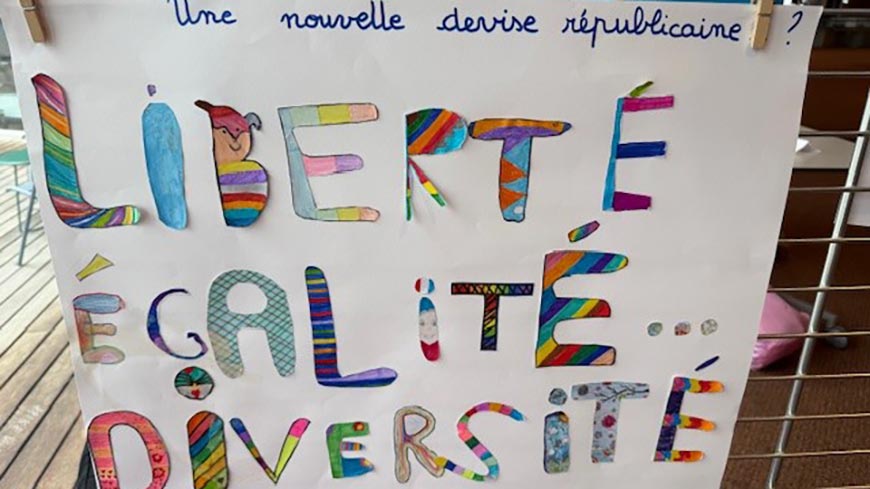 Une nouvelle devise républicaine ?
LiBERTÉ
ÉGALiTÉ...
DiVERSiTÉ